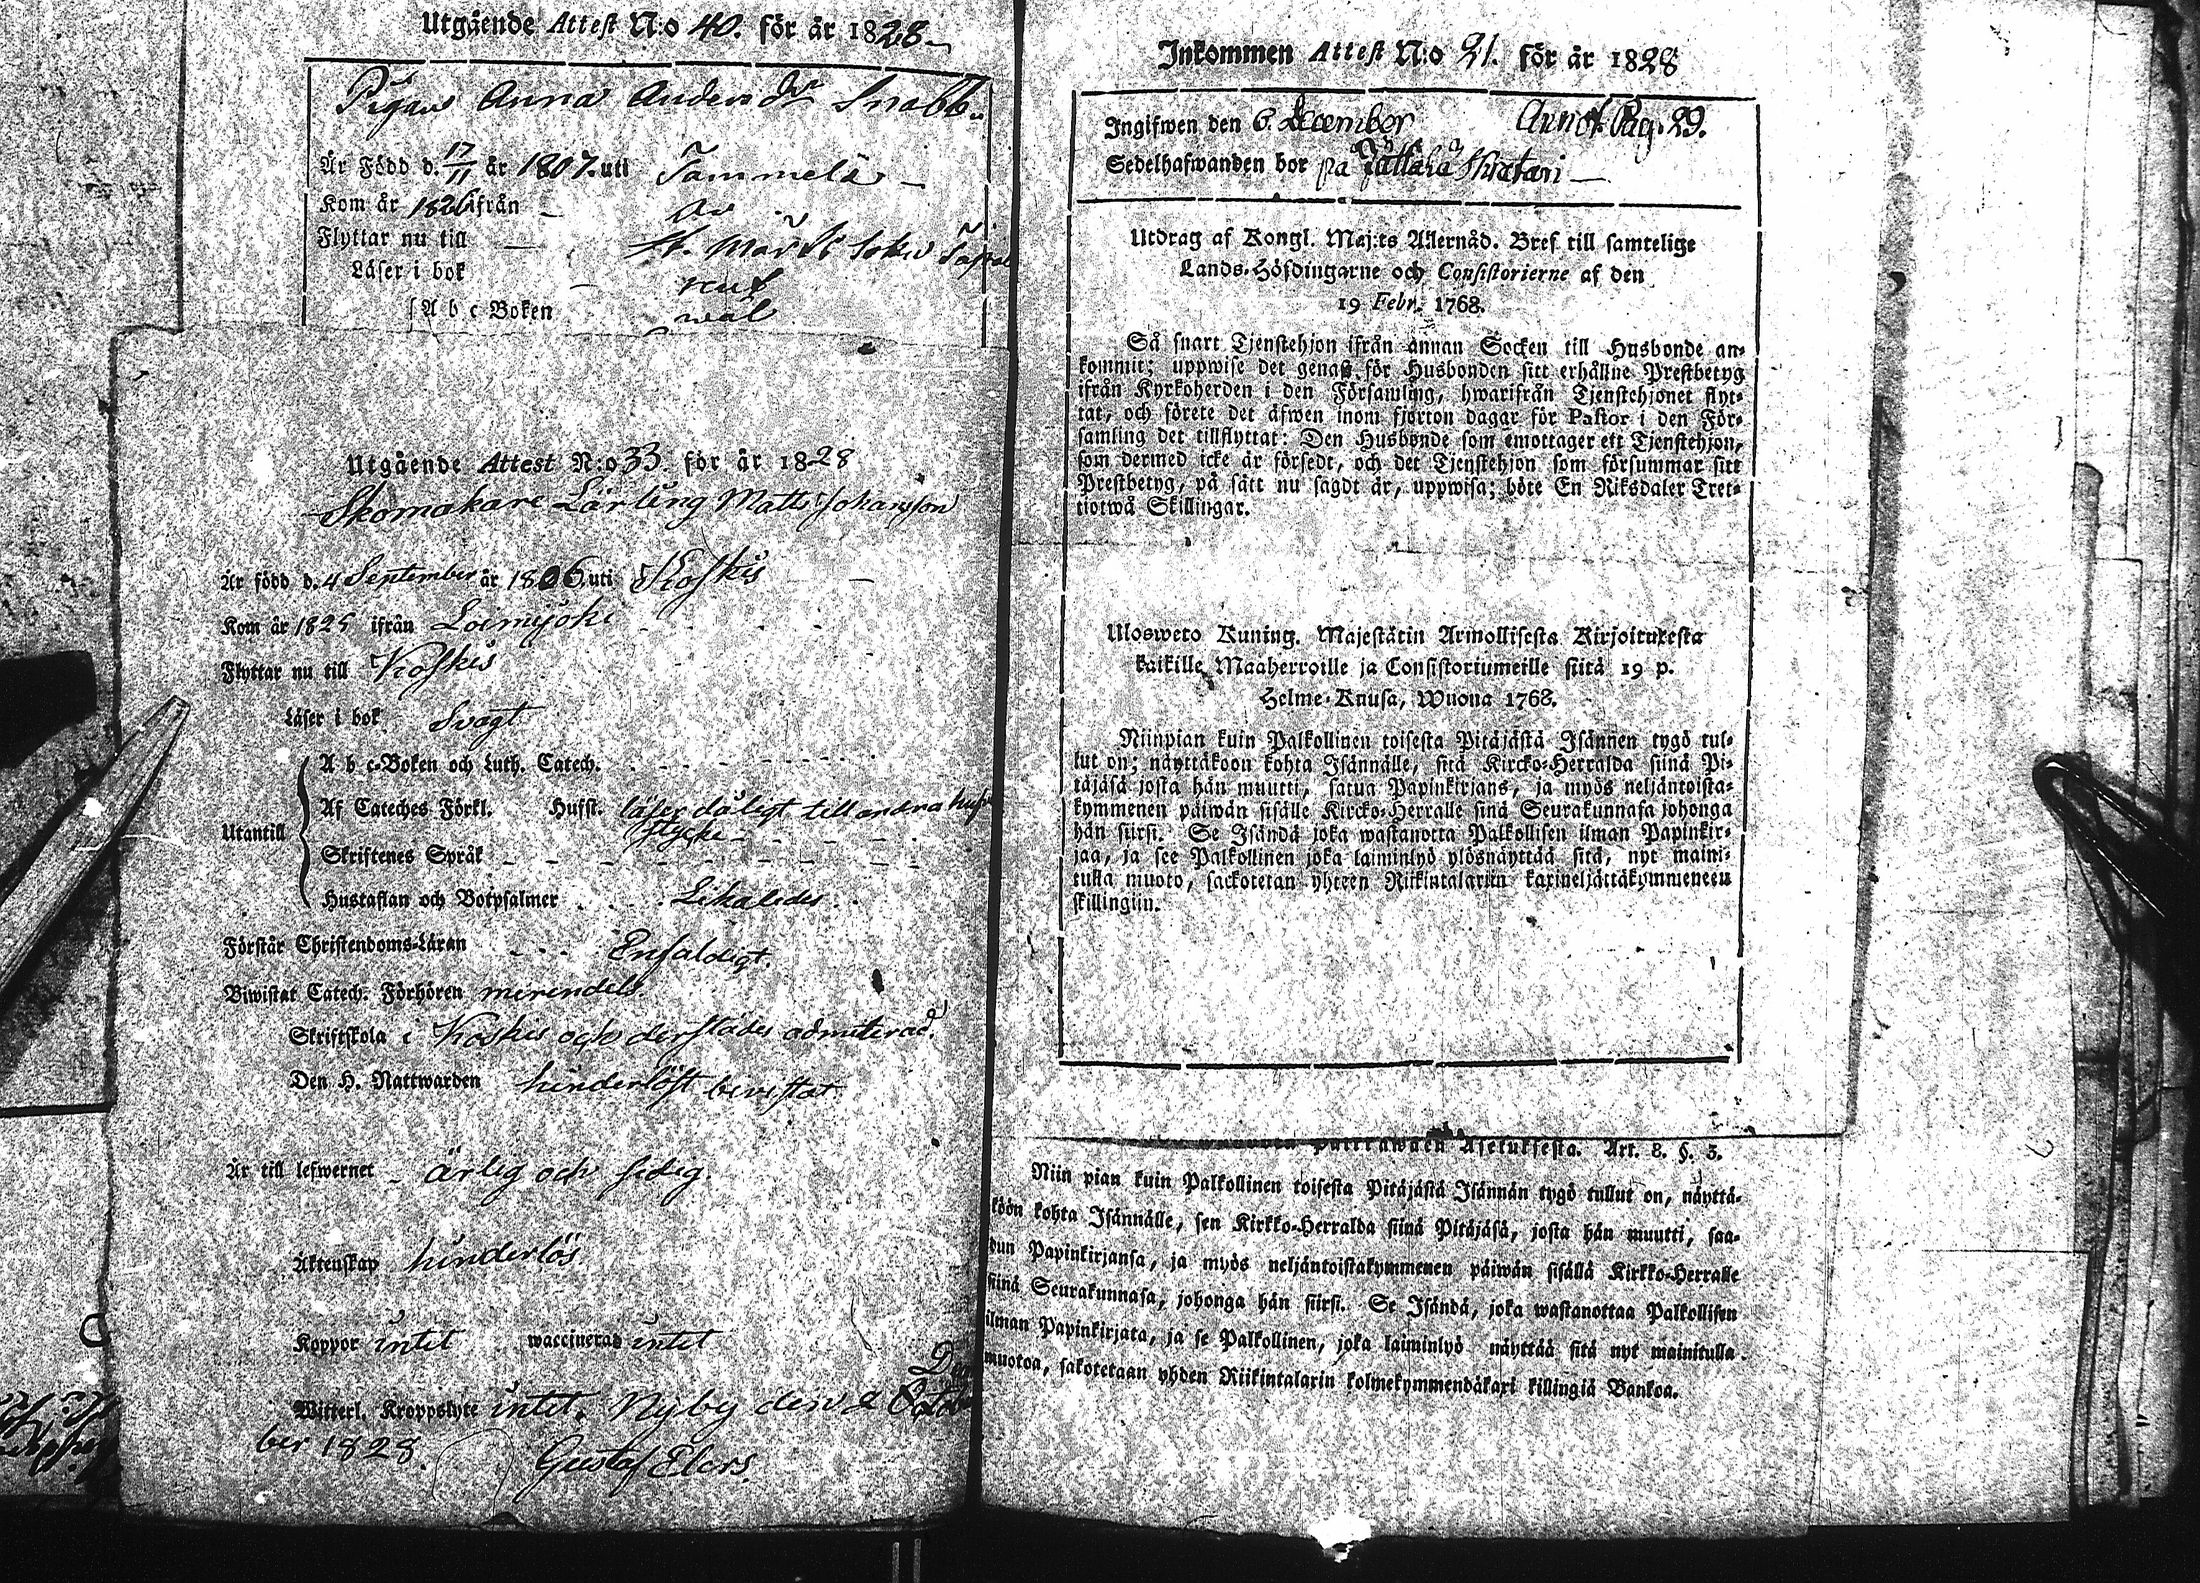 Utgående Attest N:o 40. för år 1828
Pigan Anna Andersdr Snabb.
Är Född d. 17/11 år 1807. uti Tammela
Kom år 1826 ifrån
Flyttar nu till St. Mårt. Sokn
Läser i bok rent
A b c Boken wäl
Utgående Attest N:o 33. för år 1828
Skomakare Lärling Matts Johansson
Är född d. 4 September år 1806 uti Koskis
Kom år 1825 ifrån Loimijoki
Flyttar nu till Koskis
Läser i bok Svagt
A b c-Boken och Luth. Catech.
Af Cateches Förkl. Hufst. läser dåligt till andra huf
stycke
Utantill
Skriftenes Språk
Hustaflan och Botpsalmer Likaledes
Förstår Christendoms-Läran Enfaldigt.
Biwistat Catech. Förhören merendels.
Skriftskola i Koskis och derstädes admiterad.
Den H. Nattwarden hinderlöst bevistat
Är till lefwernet ärlig och sedig.
Äktenskap hinderlös
Koppor intet waccinerad intet
Witterl. Kroppslyte intet. Nyby den 2 Octo
ber 1828.
Gustaf Elers.
Inkommen Attest N:o 21. för år 1828
Ingifwen den 6. December Annot. Pag. 29.
Sedelhafwanden bor på
Utdrag af Kongl. Maj:ts Allernåd. Bref till samtelige
Lands-Höfdingarne och Consistorierne af den
19 Febr. 1768.
Så snart Tjenstehjon ifrån annan Socken till Husbonde an-
kommit; uppwise det genast för Husbonden sitt erhållne Prestbetyg
ifrån Kyrkoherden i den Församling, hwarifrån Tjenstehjonet flyt-
tat, och förete det äfwen inom fjorton dagar för Pastor i den För-
samling det tillflyttat: Den Husbonde som emottager ett Tjenstehjon,
som dermed icke är försedt, och det Tjenstehjon som försummar sitt
Prestbetyg, på sätt nu sagdt är, uppwisa; böte En Riksdaler Tret-
tiotwå Skillingar.
Ulosweto Kuning. Majestätin Armollisesta Kirjoituxesta
kaikille Maaherroille ja Consistoriumeille siitä 19 p.
Helme-Kuusa, Wuona 1768.
Niinpian kuin Palkollinen toisesta Pitäjästä Isännen tygö tul-
lut on; näyttäkoon kohta Isännälle, sitä Kircko-Herralda siinä Pi-
täjäsä josta hän muutti, satua Papinkirjans, ja myös neljäntoista-
kymmenen päiwän sisälle Kircko-Herralle siinä Seurakunnasa johonga
hän siirsi. Se Isändä joka wastanotta Palkollisen ilman Papinkir-
jaa, ja see Palkollinen joka laiminlyö ylösnäyttää sitä, nyt maini-
tulla muoto, sackotetan yhteen Riikintalariin kaxineljättäkymmeneen
skillingiin.
Asetuksesta. Art. 8. §. 3.
Niin pian kuin Palkollinen toisesta Pitäjästä Isännän tygö tullut on, näyttä-
köön kohta Isännälle, sen Kirkko-Herralda siinä Pitäjäsä, josta hän muutti, saa-
dun Papinkirjansa, ja myös neljäntoistakymmenen päiwän sisällä Kirkko-Herralle
siinä Seurakunnasa, johonga hän siirsi. Se Isändä, joka wastanottaa Palkollisen
ilman Papinkirjata, ja se Palkollinen, joka laiminlyö näyttää sitä nyt mainitulla
muotoa, sakotetaan yhden Riikintalarin kolmekymmendäkaxi killingiä Bankoa.